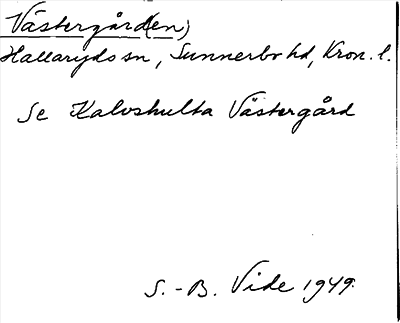 Västergård(en)
Hallaryds sn, Sunnerbo hd, Kron. l.
Se Kalvshulta Västergård
S.-B. Vide 1949.